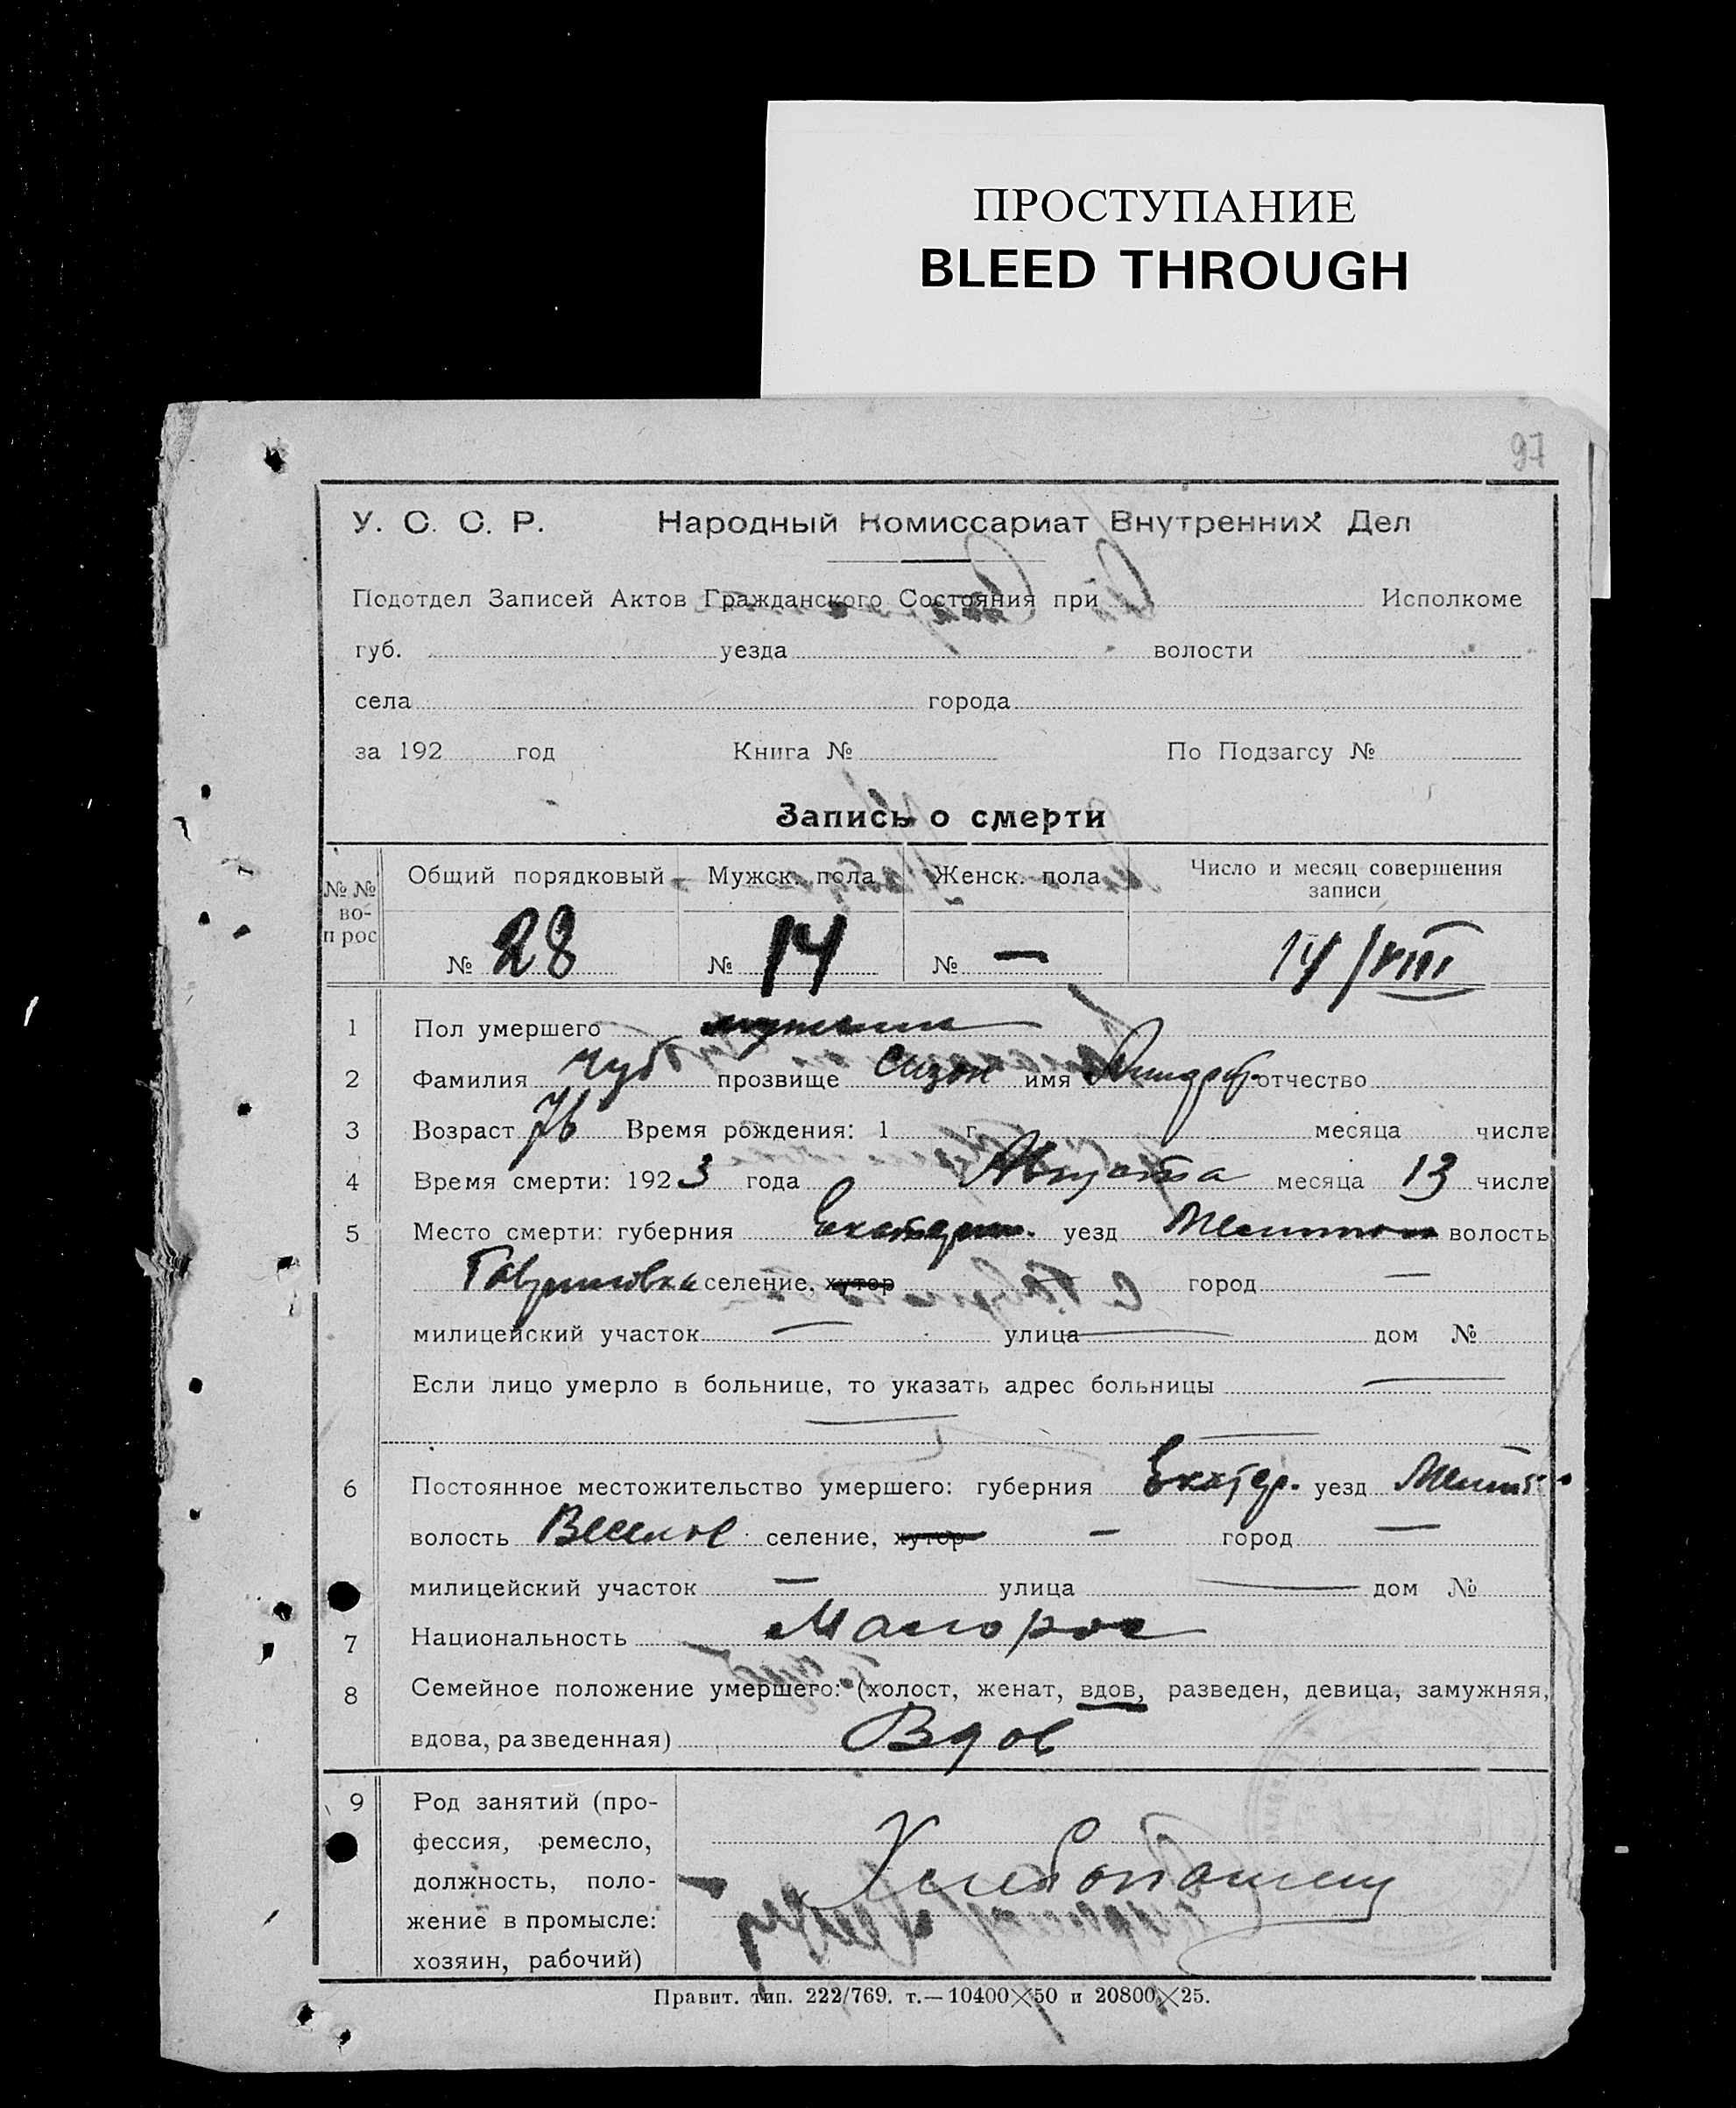 ПРОСТУПАНИЕ
BLEED THROUGH
97
У. С. С. Р. Народный Комиссариат Внутренних Дел
Подотдел Записей Актов Гражданского Состояния при Исполкоме
губ. уезда волости
села города
за 192 год Книга № По Подзагсу №
Запись о смерти
№№ во- п рос Общий порядковый Мужск. пола Женск. пола Число и месяц совершения записи
№ 28 № 14 № — 14/VIII
1 Пол умершего
2 Фамилия Чуб прозвище Сизон имя отчество
3 Возраст 76 Время рождения: 1 г. месяца числа
4 Время смерти: 1923 года Августа месяца 13 числа
5 Место смерти: губерния Екатерин. уезд волость
Гавриловка селение, хутор город —
милицейский участок — улица — дом №
Если лицо умерло в больнице, то указать адрес больницы —
— —
6 Постоянное местожительство умершего: губерния Екатер. уезд Мелит.
волость Веселое селение, хутор — город —
милицейский участок — улица — дом №
7 Национальность Малорос
8 Семейное положение умершего: (холост, женат, вдов, разведен, девица, замужняя,
вдова, разведенная) Вдов
9 Род занятий (про-
фессия, ремесло,
должность, поло-
жение в промысле:
хозяин, рабочий)
Хлебопашец
Правит. тип. 222/769. т.—10400×50 и 20800×25.